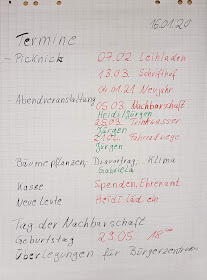 16.01.20
Termine
- Picknick 07.02 Leihladen
13.03 Schrifthof
04.01.21 Neujahr
Abendveranstaltung 05.03 Nachbarschaft
Heidi/Jürgen
25.03 Trinkwasser
Jürgen
21.02 Fahrradwege
Jürgen
Bäume pflanzen, Diavortrag, Klima
Gabriela
Kasse Spenden, Ehrenamt
Neue Leute Heidi läd ein
Tag der Nachbarschaft
Geburtstag 29.05 18⁰⁰
Überlegungen für Bürgerzentrum